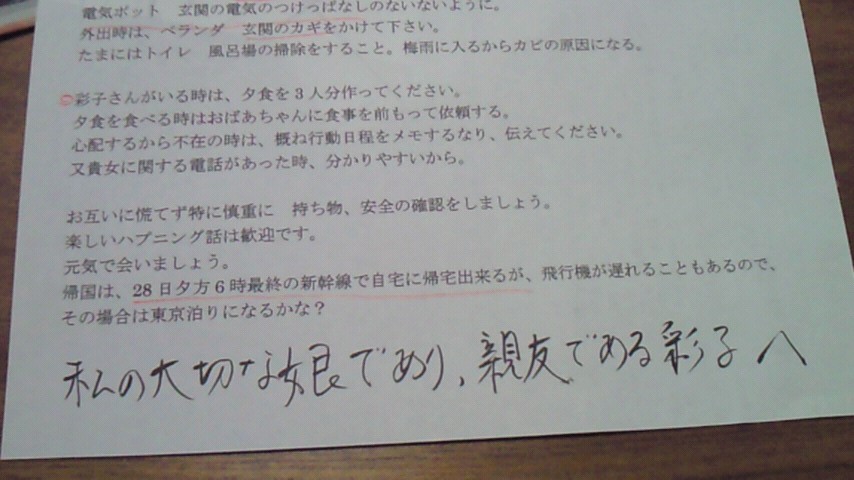 電気ポット　玄関の電気のつけっぱなしのないないように。
外出時は、ベランダ　玄関のカギをかけて下さい。
たまにはトイレ　風呂場の掃除をすること。梅雨に入るからカビの原因になる。
○彩子さんがいる時は、夕食を3人分作ってください。
夕食を食べる時はおばあちゃんに食事を前もって依頼する。
心配するから不在の時は、概ね行動日程をメモするなり、伝えてください。
又貴女に関する電話があった時、分かりやすいから。
お互いに慌てず特に慎重に　持ち物、安全の確認をしましょう。
楽しいハプニング話は歓迎です。
元気で会いましょう。
帰国は、28日夕方6時最終の新幹線で自宅に帰宅出来るが、飛行機が遅れることもあるので、
その場合は東京泊りになるかな？
私の大切な娘であり、親友である彩子へ